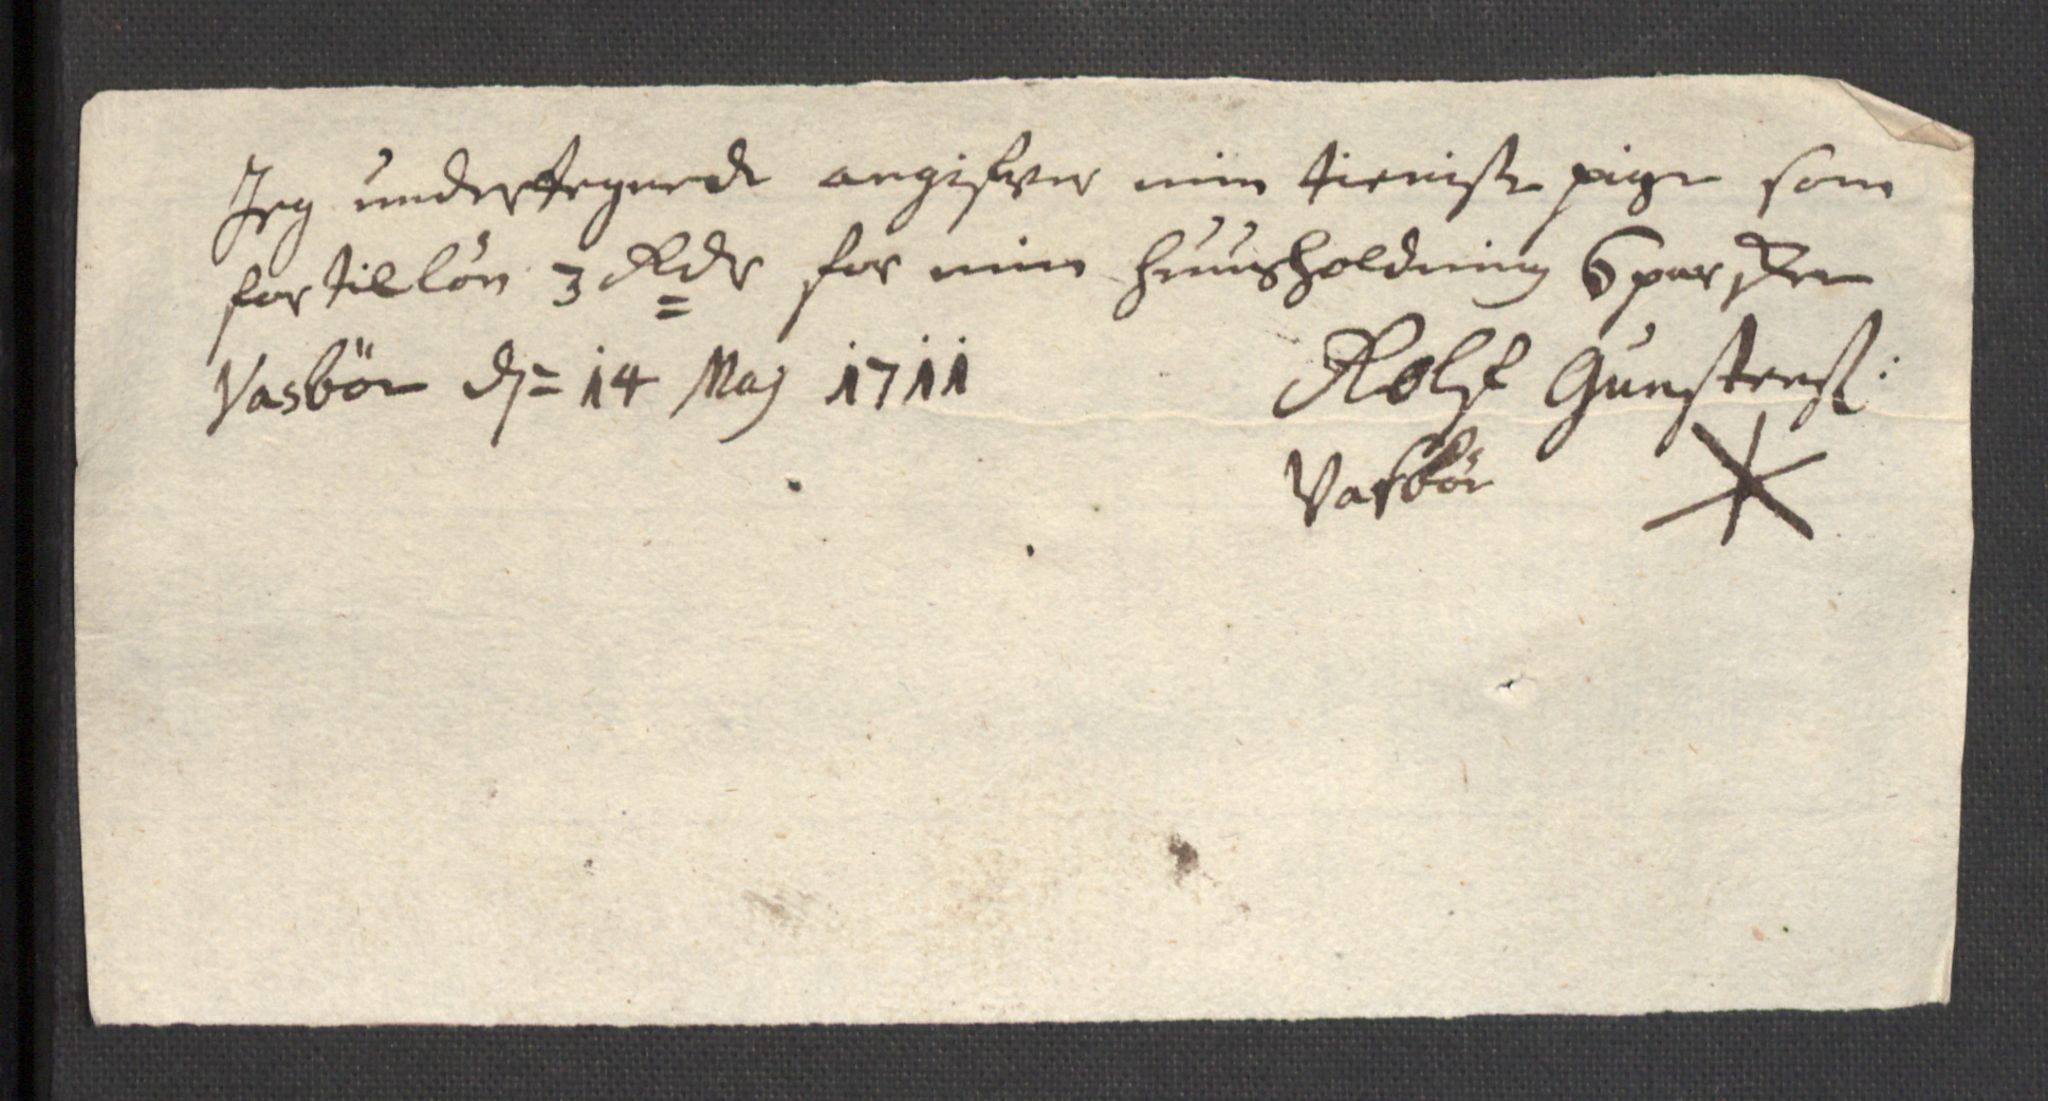 Jeg undertegnede angifver min tieniste pige som
for til lön 3 Rdr for min huusholdning 6 par skoe
Vasbön dn= 14 Maj 1711
Rolf Gunstensß:
Vasbön